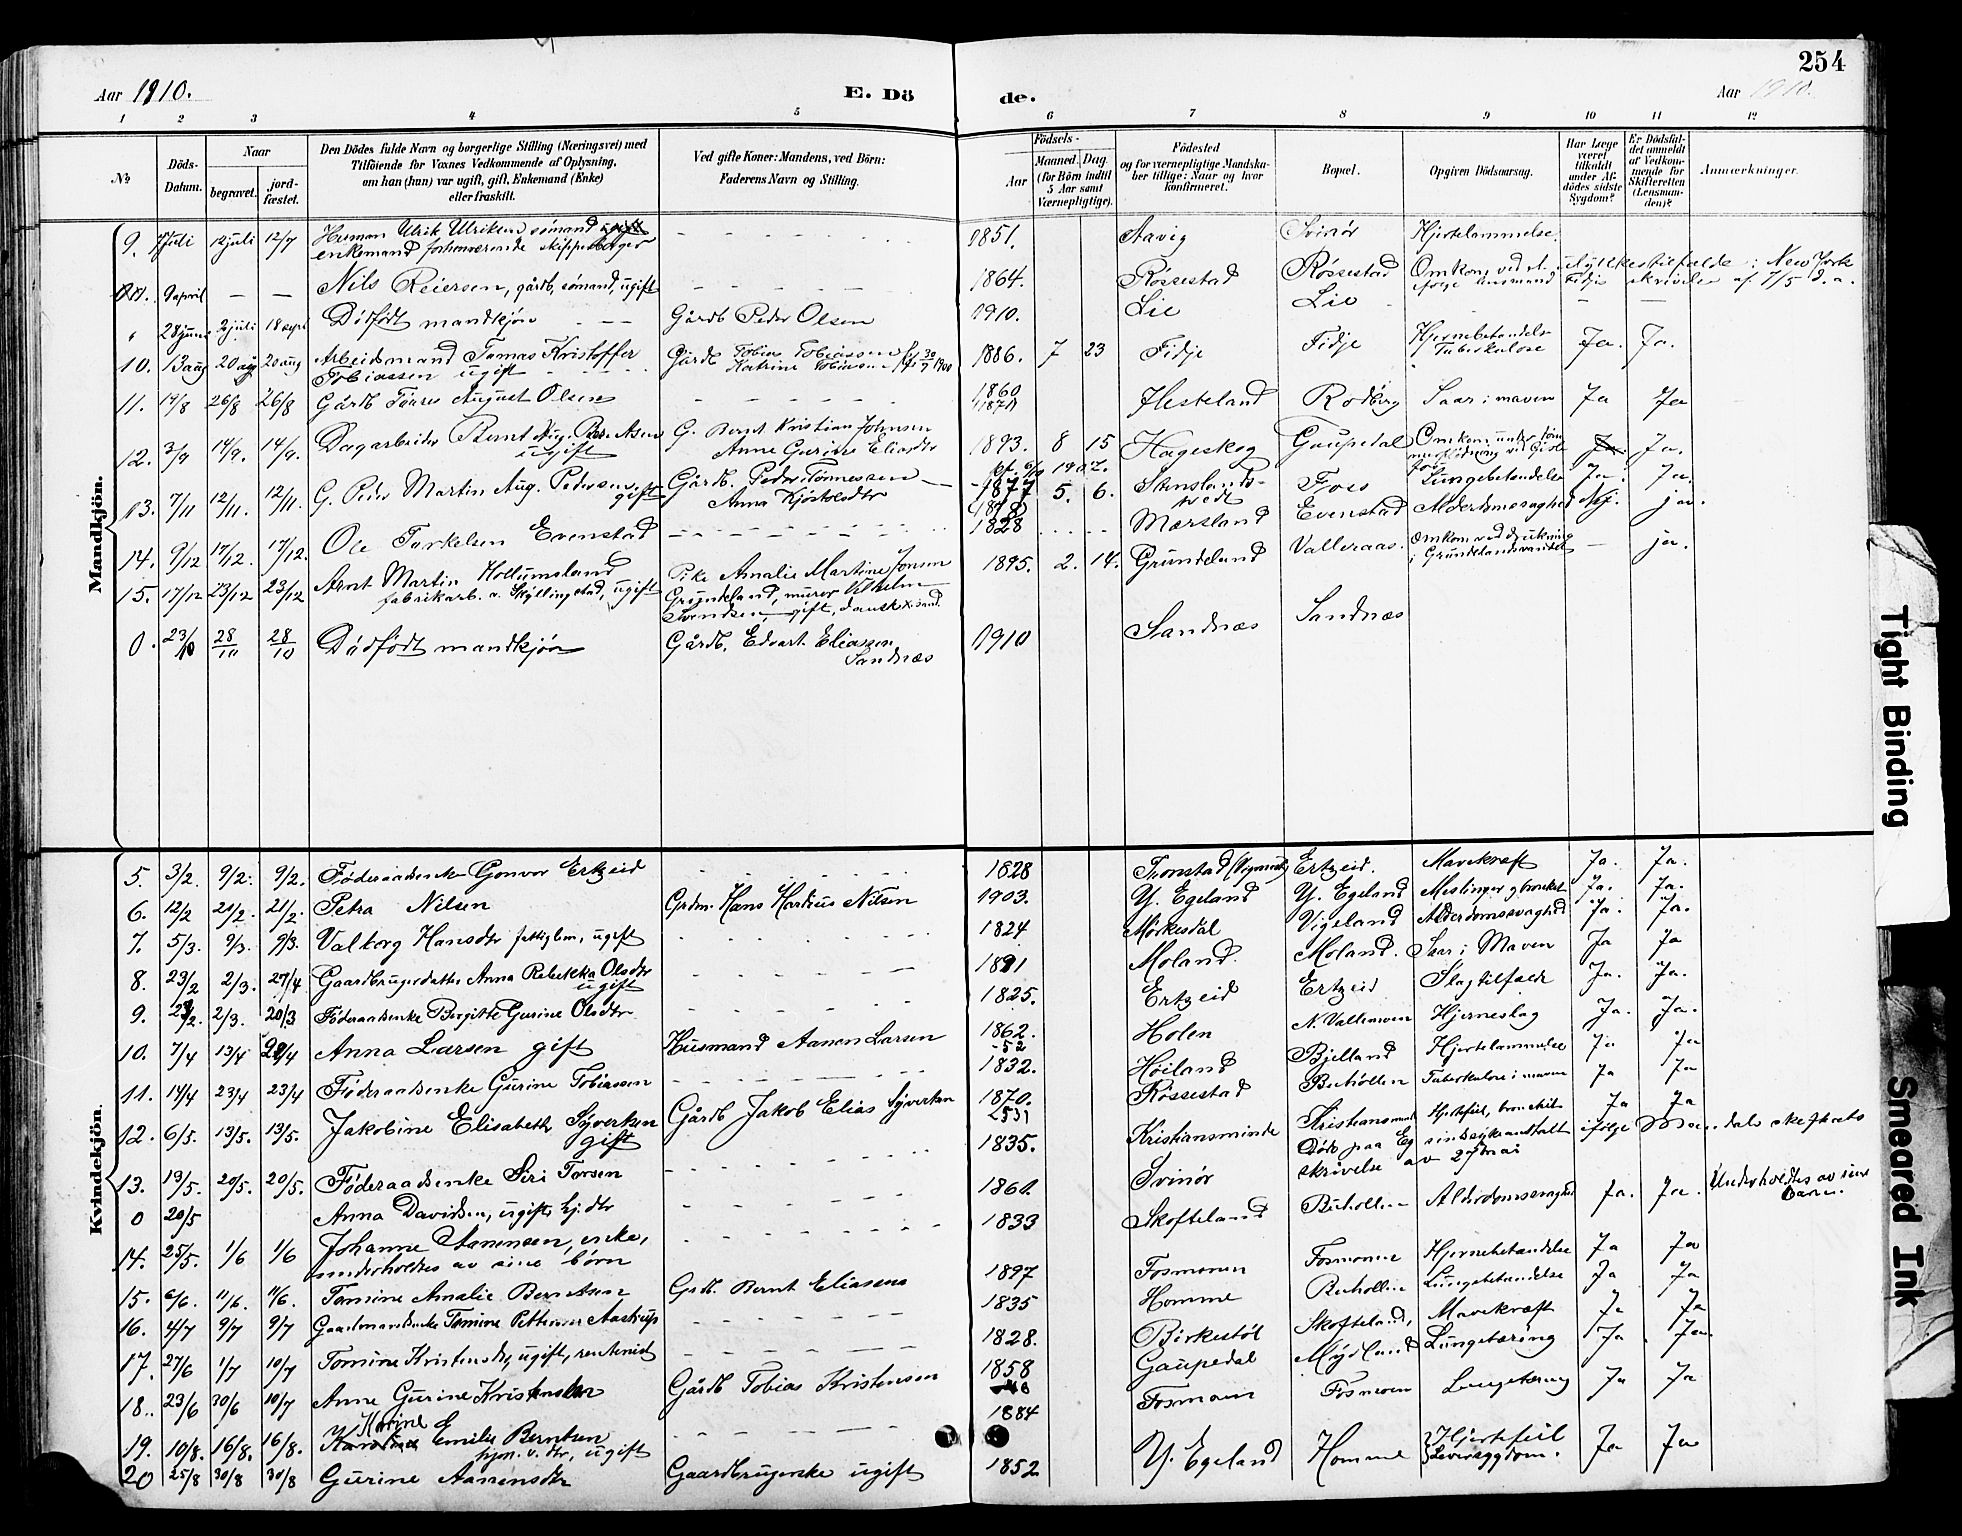 254
Aar 1910.
E. Dö
de.
Aar 1910.
1 2 3 4 5 6 7 8 9 10 11 12
No
Döds-Datum.
Naar
begravet.
jord-fæstet.
Den Dödes fulde Navn og borgerlige Stilling (Næringsvei) med
Tilföiende for Voxnes Vedkommende af Oplysning,
om han (hun) var ugift, gift, Enkemand (Enke)
eller fraskilt.
Ved gifte Koner: Mandens, ved Börn:
Faderens Navn og Stilling.
Födsels-
Aar
Maaned. Dag
(for Börn indtil
5 Aar samt
Værnepligtige).
Födested
og for værnepligtige Mandska-
ber tillige: Naar og hvor
konfirmeret.
Bopæl.
Opgiven Dödsaarsag.
Har Læge
været
tilkaldt
under Af-
dödes sidste
Sygdom?
Er Dödsfal-
det anmeldt
af Vedkom-
mende for
Skifteretten
(Lensman-
den)?
Anmærkninger.
Mandkjön.
9. juli 12 juli 12/7 Herman Ulrik Ulriksen sømand
enkemand forhenværende skippsbygger 1851. Aavig Svinör Hjertelammelse.
9 april — — Nils Reiersen, gårdb, sømand, ugift 1864. Røssestad Røssestad Omkom ved ulykkestilfælde i New York
ifölge lensmand Fidje skrivelse af 7/5 d.a.
" 28 juni 2 juli 18 sept Dödfödt mandkjön Gårdb Peder Olsen 1910. Lie Lie — —
10. 13 aug 20 aug 20 aug Arbeidsmand Tomas Kristoffer
Tobiassen ugift Gårdb Tobias Tobiassen
Katrine Tobiassen 1886. 7 23 Fidje Fidje Hjernebetændelse
Tuberkulose Ja. Ja.
11. 19/8 26/8 26/8 Gårdb Tönnes August Olsen 1860 Hesteland Rodberg Saar i maven Ja Ja
12. 3/9 14/9. 14/9. Dagarbeider Bernt Aug. Berntsen
ugift G. Bernt Kristian Johnsen
Anne Gurine Eliasdtr 1893. 8 15 Hageskog Gaupedal Omkom under töm
merflödning ved Ja.
13. 7/11 12/11. 12/11. G. Peder Martin Aug. Pedersen gift Gårdb. Peder Tönnessen
Anna Kjöstolsdtr 1877 5. 6. Stenslands-
Foss Lungebetændelse Ja. Ja
14. 9/12 17/12. 17/12. Ole Torkelsen Evenstad 1828 Mærsland Evenstad Alderdomssvaghed Nej. ja.
15. 17/12 23/12 23/12 Arnt Martin Hollumsland
fabrikarb. a. Skyllingstad, ugift Pike Amalie Martine Jonsen
Grundeland, murer Vilhelm
Svendsen, gift, dansk 1895. 2. 14. Grundeland Valleraas. Omkom ved drukning
i Grundelandsvandet — ja.
0. 23/10 28/10 28/10 Dödfödt mandkjön Gårdb. Edvart Eliassen
Sandnæs 1910 Sandnæs Sandnæs
Kvindekjön.
5. 3/2. 9/2. 9/2. Føderaadsenke Gonvor Ertzeid 1828 Tronstad Ertzeid. Mavekræft Ja. Ja.
6. 12/2 21/2. 21/2. Petra Nilsen Grdm. Hans Markius Nilsen 1903. Y. Egeland Y. Egeland Meslinger g bronkit Ja. Ja.
7. 5/3. 9/3. 9/3. Valborg Hansdtr fattiglem, ugift 1824 Mörkesdal Vigeland Alderdomssvaghed Ja. Ja.
8. 23/2 2/3. 27/4 Gaardbrugerdatter Anna Rebekka Olsdtr
ugift 1891 Moland. Moland. Saar i Maven Ja Ja
9. 2/3. 20/3 Føderaadsenke Birgitte Gurine Olsdtr 1825. Ertzeid Ertzeid Slagtilfælde Ja. Ja.
10. 7/4 13/4 24/4 Anna Larsen gift Husmand Aanen Larsen 1862. Holen N. Valleraas Hjerneslag Ja. Ja.
11. 14/4 23/4 23/4 Føderaadsenke Gurine Tobiassen 1832. Høiland Bjelland Hjertelammelse Ja Ja
12. 6/5. 13/5. 13/5. Jakobine Elisabeth Syvertsen
gift Gårdb Jakob Elias Syvertsen 1870. Røssestad Buhöllen Tuberkulose i maven Ja Ja
13. 13/5. 20/5. 20/5. Føderaadsenke Siri Torsen 1835. Kristiansminde Kristiansminde Hjertefeil, bronchit Ja Ja
0 20/5 Anna Davidsen, ugift hj. dtr 1861. Svinör Døde paa Eg sindsykeanstalt ifölge Mandals skifterets
skrivelse av 27 mai
14. 25/5. 1/6 1/6 Johanne Aanensen, enke,
underholdtes av sine börn 1833 Skofteland Buhollen Alderdomssvaghed Ja. Ja. Underholdtes av sine
barn.
15. 6/6. 11/6. 11/6. Tomine Amalie Berntsen Grdb. Bernt Eliasens 1897 Fosmonen Fosmonen Hjernebetændelse Ja Ja
16. 4/7 9/7 9/7 Gaardmandsenke Tomine Aastrup 1835 Homme Buhollen Lungebetændelse Ja Ja
17. 27/6 1/7 10/7 Tomine Kristensdtr, ugift, rentenist 1828. Birkestöl Skofteland, Mavekræft Ja Ja
18. 23/6 30/6 10/7 Anne Gurine Kristensen Gårdb Tobias Kristensen 1858 Gaupedal Mydland Lungetæring Ja Ja.
19. 10/8. 16/8. 16/8. Karine Emilie Berntsen
hjem. v. dtr, ugift 1884 Fosmoen Fosmoen Lungetæring Ja Ja
20 25/8 30/8 30/8 Gurine Aanensdtr Gaardbrugerske ugift 1852 Y. Egeland Homme Hjertefeil
Leversygdom. Ja Ja
Tight Binding
Smeared Ink